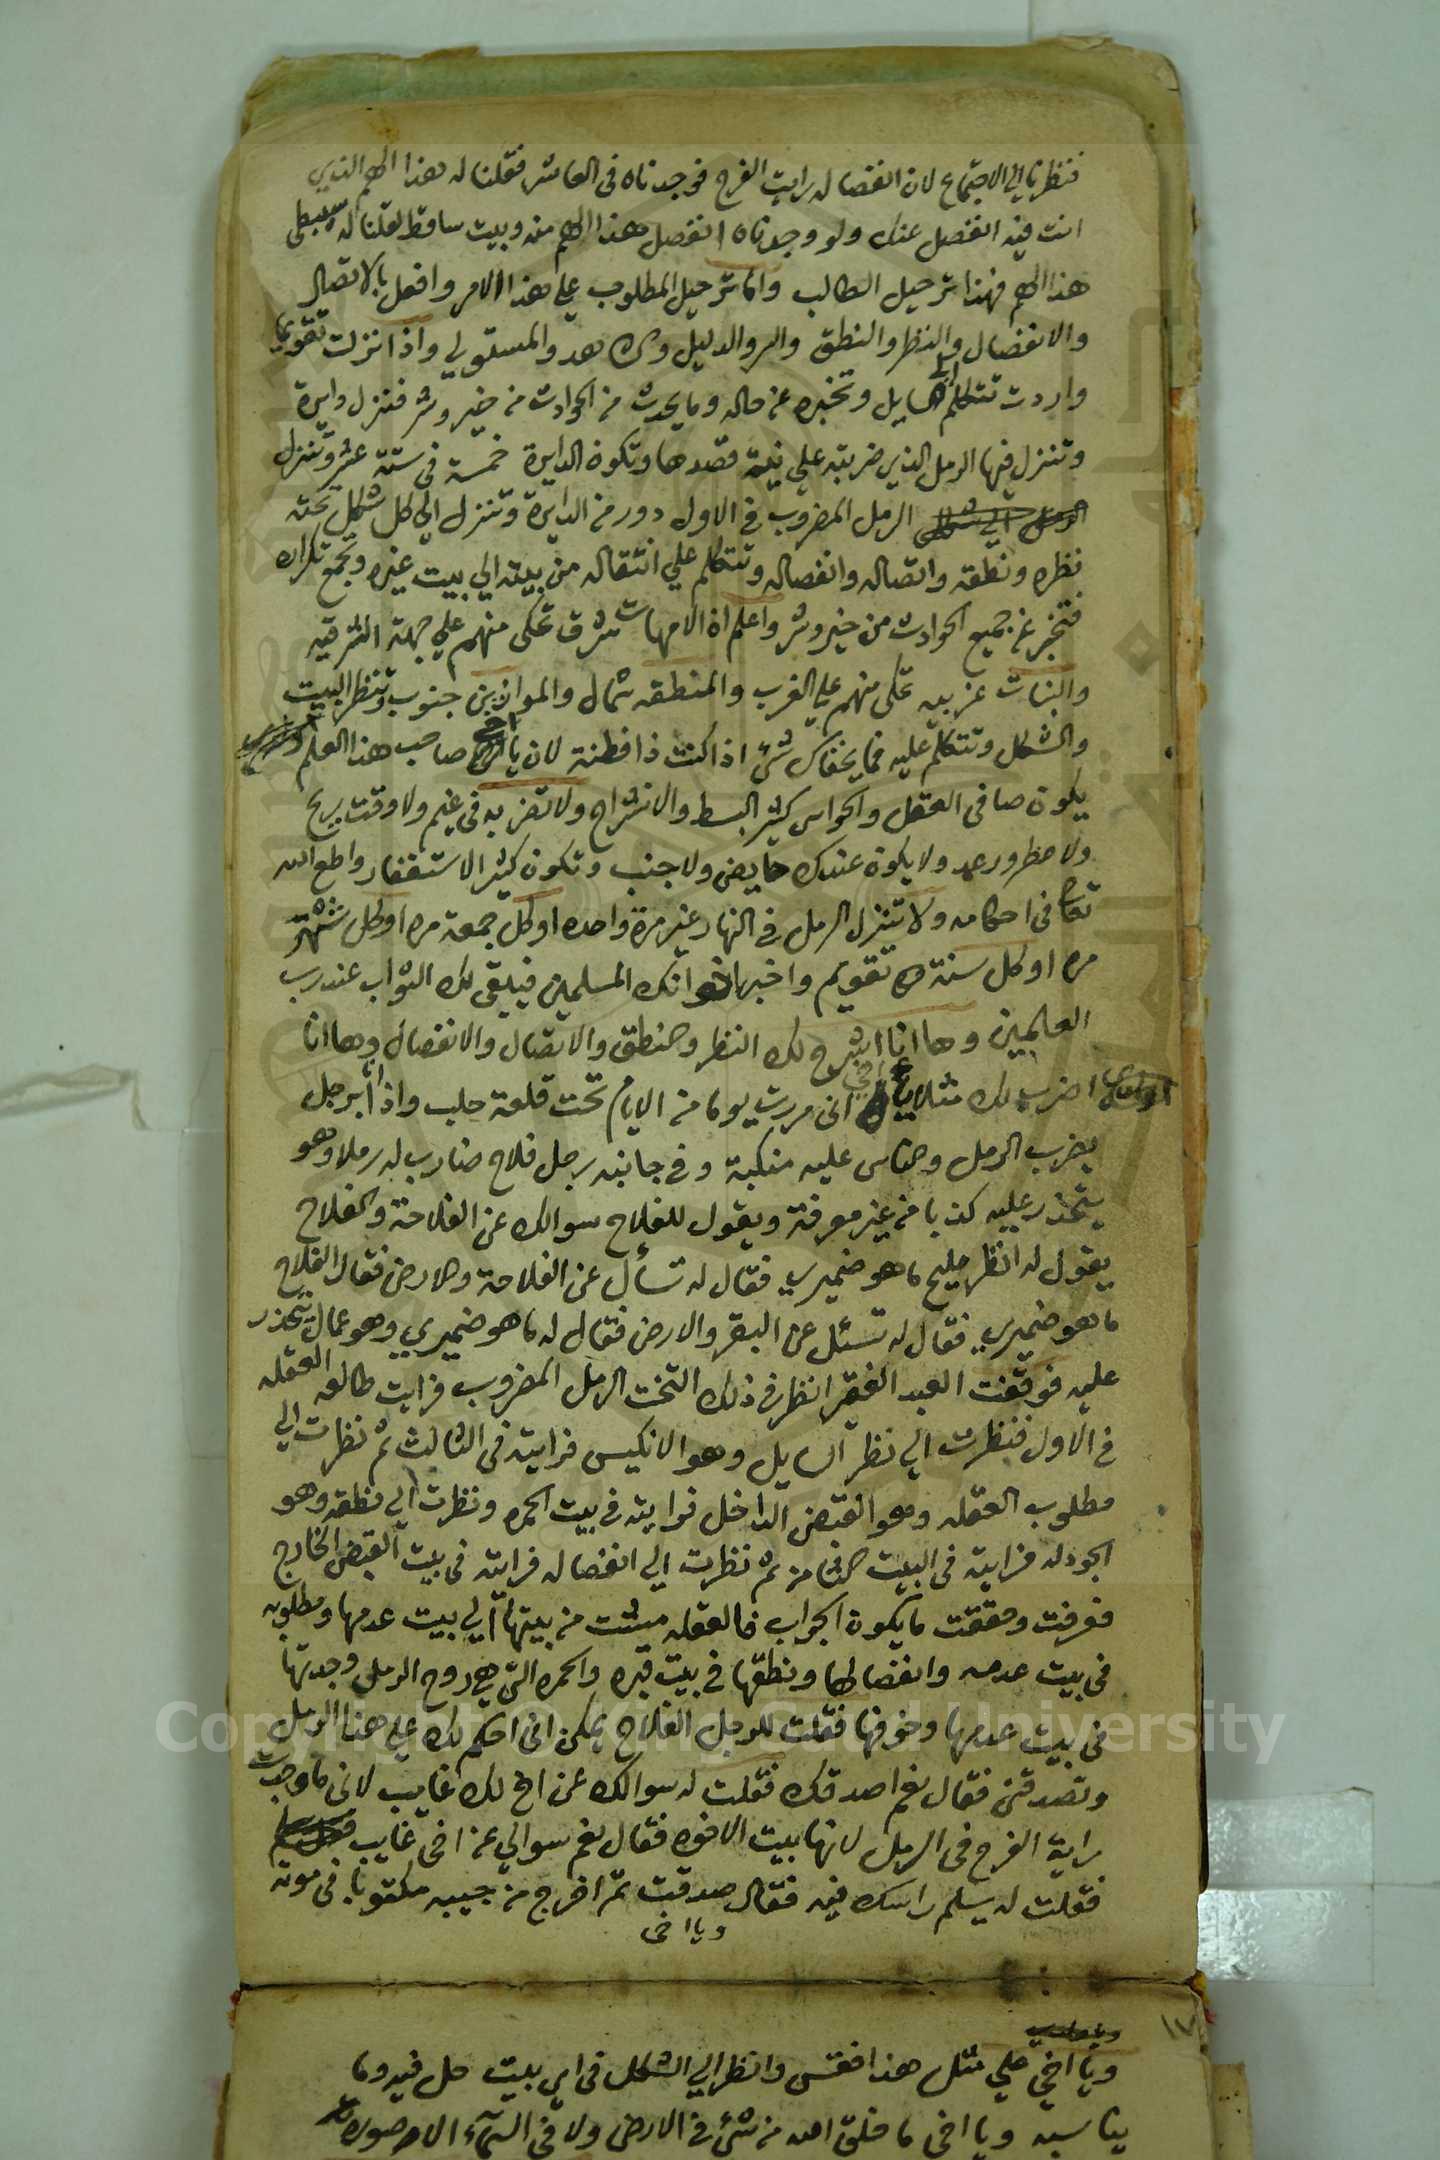 فنظرنا الي الاجتماع لان انفصاله راية الفرج فوجدناه في العاشر فقلنا له هذا الهم الذي
انت فيه انفصل عنك ولو وجدناه انفصل هذا الهم منه وبيت ساقط لقلنا له سيبطي
هذا الهم فهذا ترحيل الطالب واما ترحيل المطلوب علي هذا الامر وافعل بالاتصال
والانفصال والنظر والنطق والسر والدليل والمستولي واذا نزلت تقويما
واردت تتكلم السايل وتخبره عن حاله وما يحدث من الحوادث من خير وشر فتنزل دايرة
وتنزل فيها الرمل الذي ضربته علي نية قصدها وتكون الدايرة خمسة في ستة عشر وتنزل
الرمل المضروب في الاول دور من الدايرة وتنزل الي كل شكل تحته
نظره ونطقه واتصاله وانفصاله وتتكلم علي انتقاله من بيته الي بيت غيره وتجمع تكراره
فتخبر عن جميع الحوادث من خير وشر واعلم ان الامهات شرق تحكي منهم علي جهة الشرقيه
والبنات غربيه تحكي منهم علي الغرب والمنطقه شمال والموازين جنوب وتنظر البيت
والشكل وتتكلم عليه فما يخفاك شئ اذا كنت ذا فطنة لان يا اخي صاحب هذا العلم
يكون صافي العقل والحواس كثير البسط والانشراح ولا تضربه في غيم ولا وقت ريح
ولا مطر ورعد ولا يكون عندك حايض ولا جنب وتكون كثير الاستغفار واطع الله
تعالي في احكامه ولا تنزل الرمل في النهار غير مرة واحده او كل جمعة مره او كل شهر
مره او كل سنة تقويم واخبر اخوانك المسلمين فيبقي لك الثواب عند رب
العلمين وها انا اشرح لك النظر والنطق والاتصال والانفصال وها انا
اضرب لك مثلا يا اخي اني مررت يوما من الايام تحت قلعة حلب واذا برجل
يضرب الرمل والناس عليه منكبة وفي جانبه رجل فلاح ضارب له رملا وهو
يتحذر عليه كذبا من غير معرفة ويقول للفلاح سوالك عن الفلاحة والفلاح
يقول له انظر مليح ما هو ضميري فقال له تسأل عن الفلاحة والارض فقال الفلاح
ما هو ضميري فقال له تسئل عن البقر والارض فقال له ما هو ضميري وهو عمال يتحذر
عليه فوقفت العبد الفقير انظر في ذلك التخت الرمل المضروب فرايت طالعه العقله
في الاول فنظرت الي نظر السايل وهو الانكيس فرايته في الثالث ثم نظرت الي
مطلوب العقله وهو القبض الداخل فرايته في بيت الحمره ونظرت الي منطقه وهو
الجودله فرايته في البيت الثامن ثم نظرت الي انفصاله فرايته في بيت القبض الخارج
فعرفت وحققت ما يكون الجواب فالعقله مشت من بيتها الي بيت عدمها ومطلوبه
في بيت عدمه وانفصالها ونطقها في بيت قبره والحمره التي هي روح الرمل وجدتها
في بيت عدمها وخوفها فقلت للرجل الفلاح يمكن اني احكم لك علي هذا الرمل
وتصدقني فقال نعم اصدقك فقلت له سوالك عن اخ لك غايب لاني ما وجدت
راية الفرح في الرمل لانها بيت الاخوه فقال نعم سوالي عن اخي غايب
فقلت له يسلم راسك فيه فقال صدقت ثم اخرج من جيبه مكتوبا في موته
ويا اخي
١٧
ويا اخي علي مثل هذا فقس وانظر الي الشكل في اي بيت حل فيه وما
يناسبه ويا اخي ما خلق الله من شئ في الارض ولا في السماء الا صورته